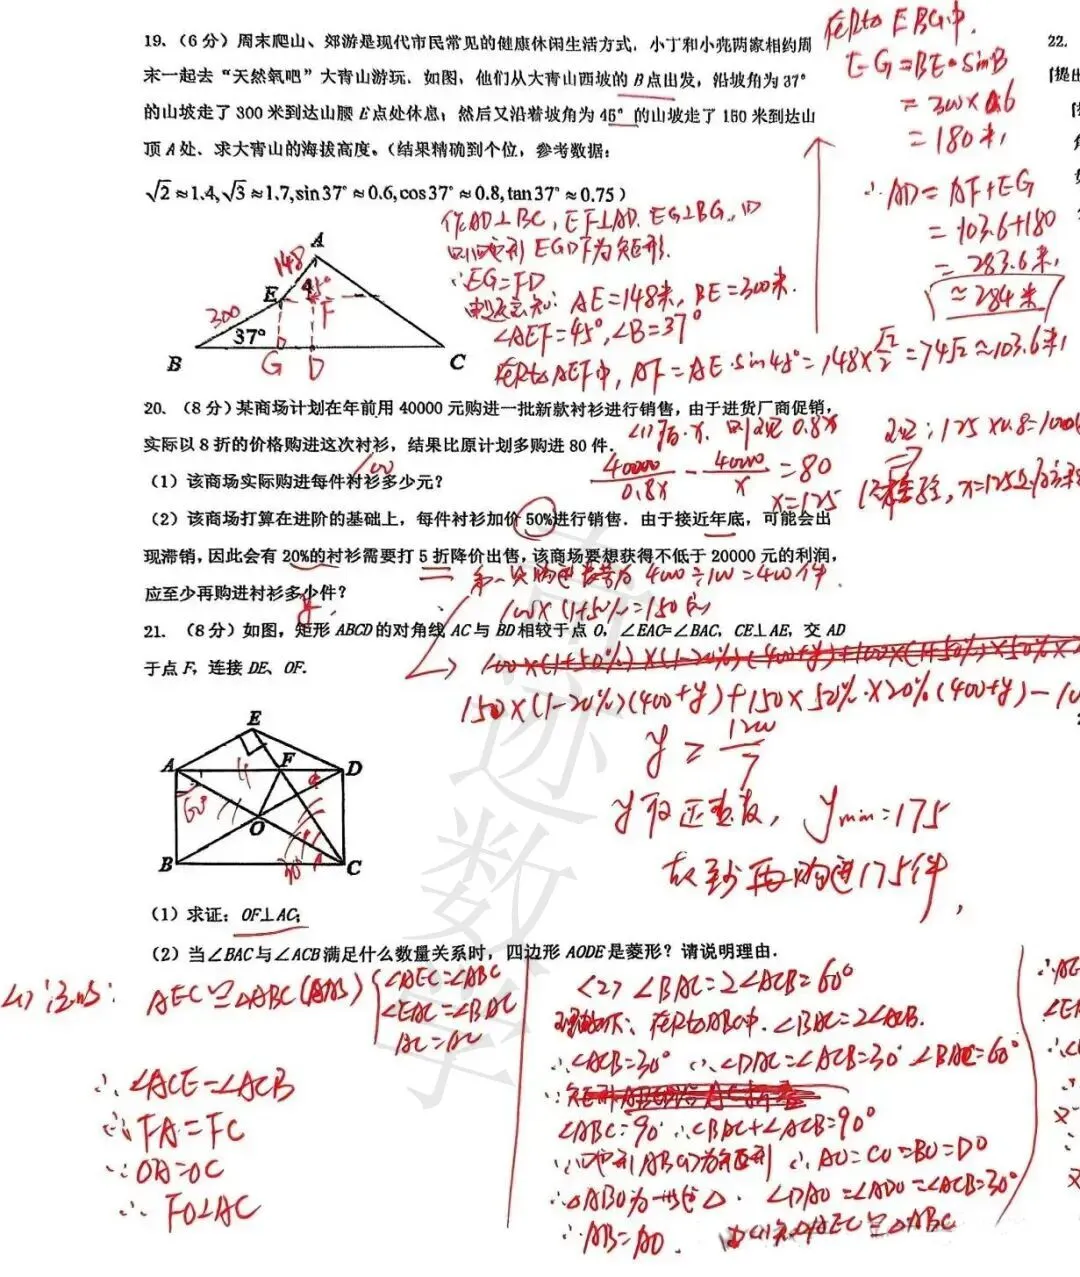 19. （6分）周末爬山、郊游是现代市民常见的健康休闲生活方式．小丁和小亮两家相约周
末一起去“天然氧吧”大青山游玩．如图，他们从大青山西坡的B点出发，沿坡角为37°
的山坡走了300米到达山腰E点处休息，然后又沿着坡角为45°的山坡走了150米到达山
顶A处、求大青山的海拔高度。（结果精确到个位，参考数据：
√2≈1.4,√3≈1.7,sin37°≈0.6,cos37°≈0.8,tan37°≈0.75）
在Rt△EBG中，
EG=BE·sinB
=300×0.6
=180米，
∴AD=AF+EG
=103.6+180
=283.6米，
≈284米
作AD⊥BC，EF⊥AD，EG⊥BG，
四边形EGDF为矩形．
∴EG=FD
由题意知：AE=148米，BE=300米．
∠AEF=45°，∠B=37°
在Rt△AEF中，AF=AE·sin45°=148×√2/2=74√2≈103.6米，
A
148
45°
E
F
300
37°
B
G
D
C
20. （8分）某商场计划在年前用40000元购进一批新款衬衫进行销售，由于进货厂商促销，
实际以8折的价格购进这次衬衫，结果比原计划多购进80件．
（1）该商场实际购进每件衬衫多少元？
100
40000/0.8x - 4000/x =80
x=125
（2）该商场打算在进阶的基础上，每件衬衫加价50%进行销售．由于接近年底，可能会出
现滞销，因此会有20%的衬衫需要打5折降价出售，该商场要想获得不低于20000元的利润，
应至少再购进衬衫多少件？
y
100×(1+50%)=150元
150×(1-20%)(400+y)+150×50%×20%(400+y)-
y≥1200/7
y取正整数，ymin=175
故至少再购进175件，
21. （8分）如图，矩形ABCD的对角线AC与BD相较于点O，∠EAC=∠BAC，CE⊥AE，交AD
于点F，连接DE、OF．
E
A
F
D
60°
O
B
30°
C
（1）求证：OF⊥AC；
（2）当∠BAC与∠ACB满足什么数量关系时，四边形AODE是菱形？请说明理由．
(1)证明：AEC≌△ABC(AAS)
∠AEC=∠ABC
∠EAC=∠BAC
AC=AC
∴∠ACE=∠ACB
∴FA=FC
∵OA=OC
∴FO⊥AC
(2)∠BAC=2∠ACB=60°
理由如下：在Rt△ABC中．∠BAC=2∠ACB．
∴∠ACB=30° ∴∠DAC=∠ACB=30° ∠BAC=60°
∠ABC=90° ∴∠BAC+∠ACB=90°
∵四边形ABCD为矩形 ∴AO=CO=BO=DO
∴△ABO为等边△． ∠DAO=∠ADO=∠ACB=30°
∴AB=AO． 由(1)知△AEC≌△ABC
22.
数学